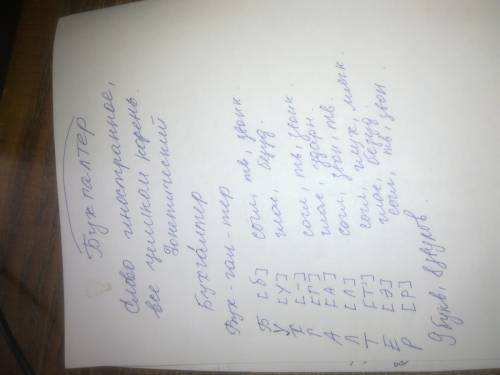 Бухгалтер
Слово иностранное,
все целиком корень.
Фонетический
Бухга́лтер
Бух-гал-тер
Б [Б] согл, тв, звонк.
У [У] глас, безуд.
Х [-]
Г [Г] согл, тв, звонк.
А [А] глас, ударн.
Л [Л] согл, звон, тв.
Т [Т'] согл, глух, мягк.
Е [Э] глас, безуд.
Р [Р] согл, тв, звон.
9 букв, 8 звуков.